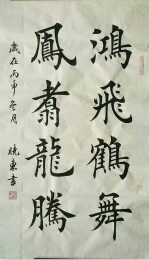 鴻飛鶴舞
鳳翥龍騰
歲在丙申冬月 曉東書